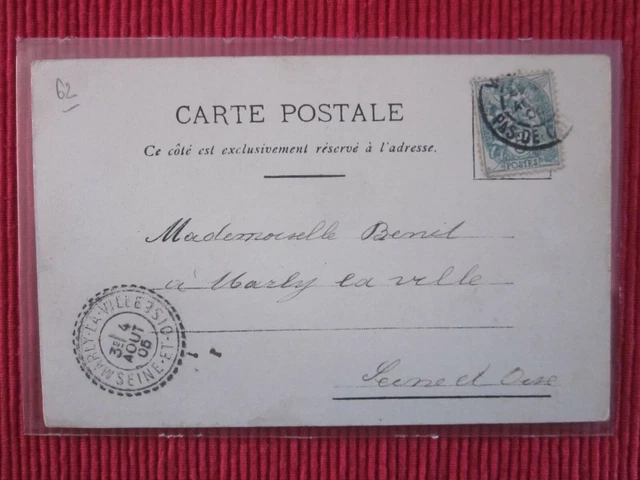 62
CARTE POSTALE
Ce côté est exclusivement réservé à l'adresse.
PAS-DE-C
POSTES
Mademoiselle Benit
à Marly la ville
Seine et Oise
MARLY-LA-VILLE
SEINE-ET-OISE
3E 4
AOUT
05